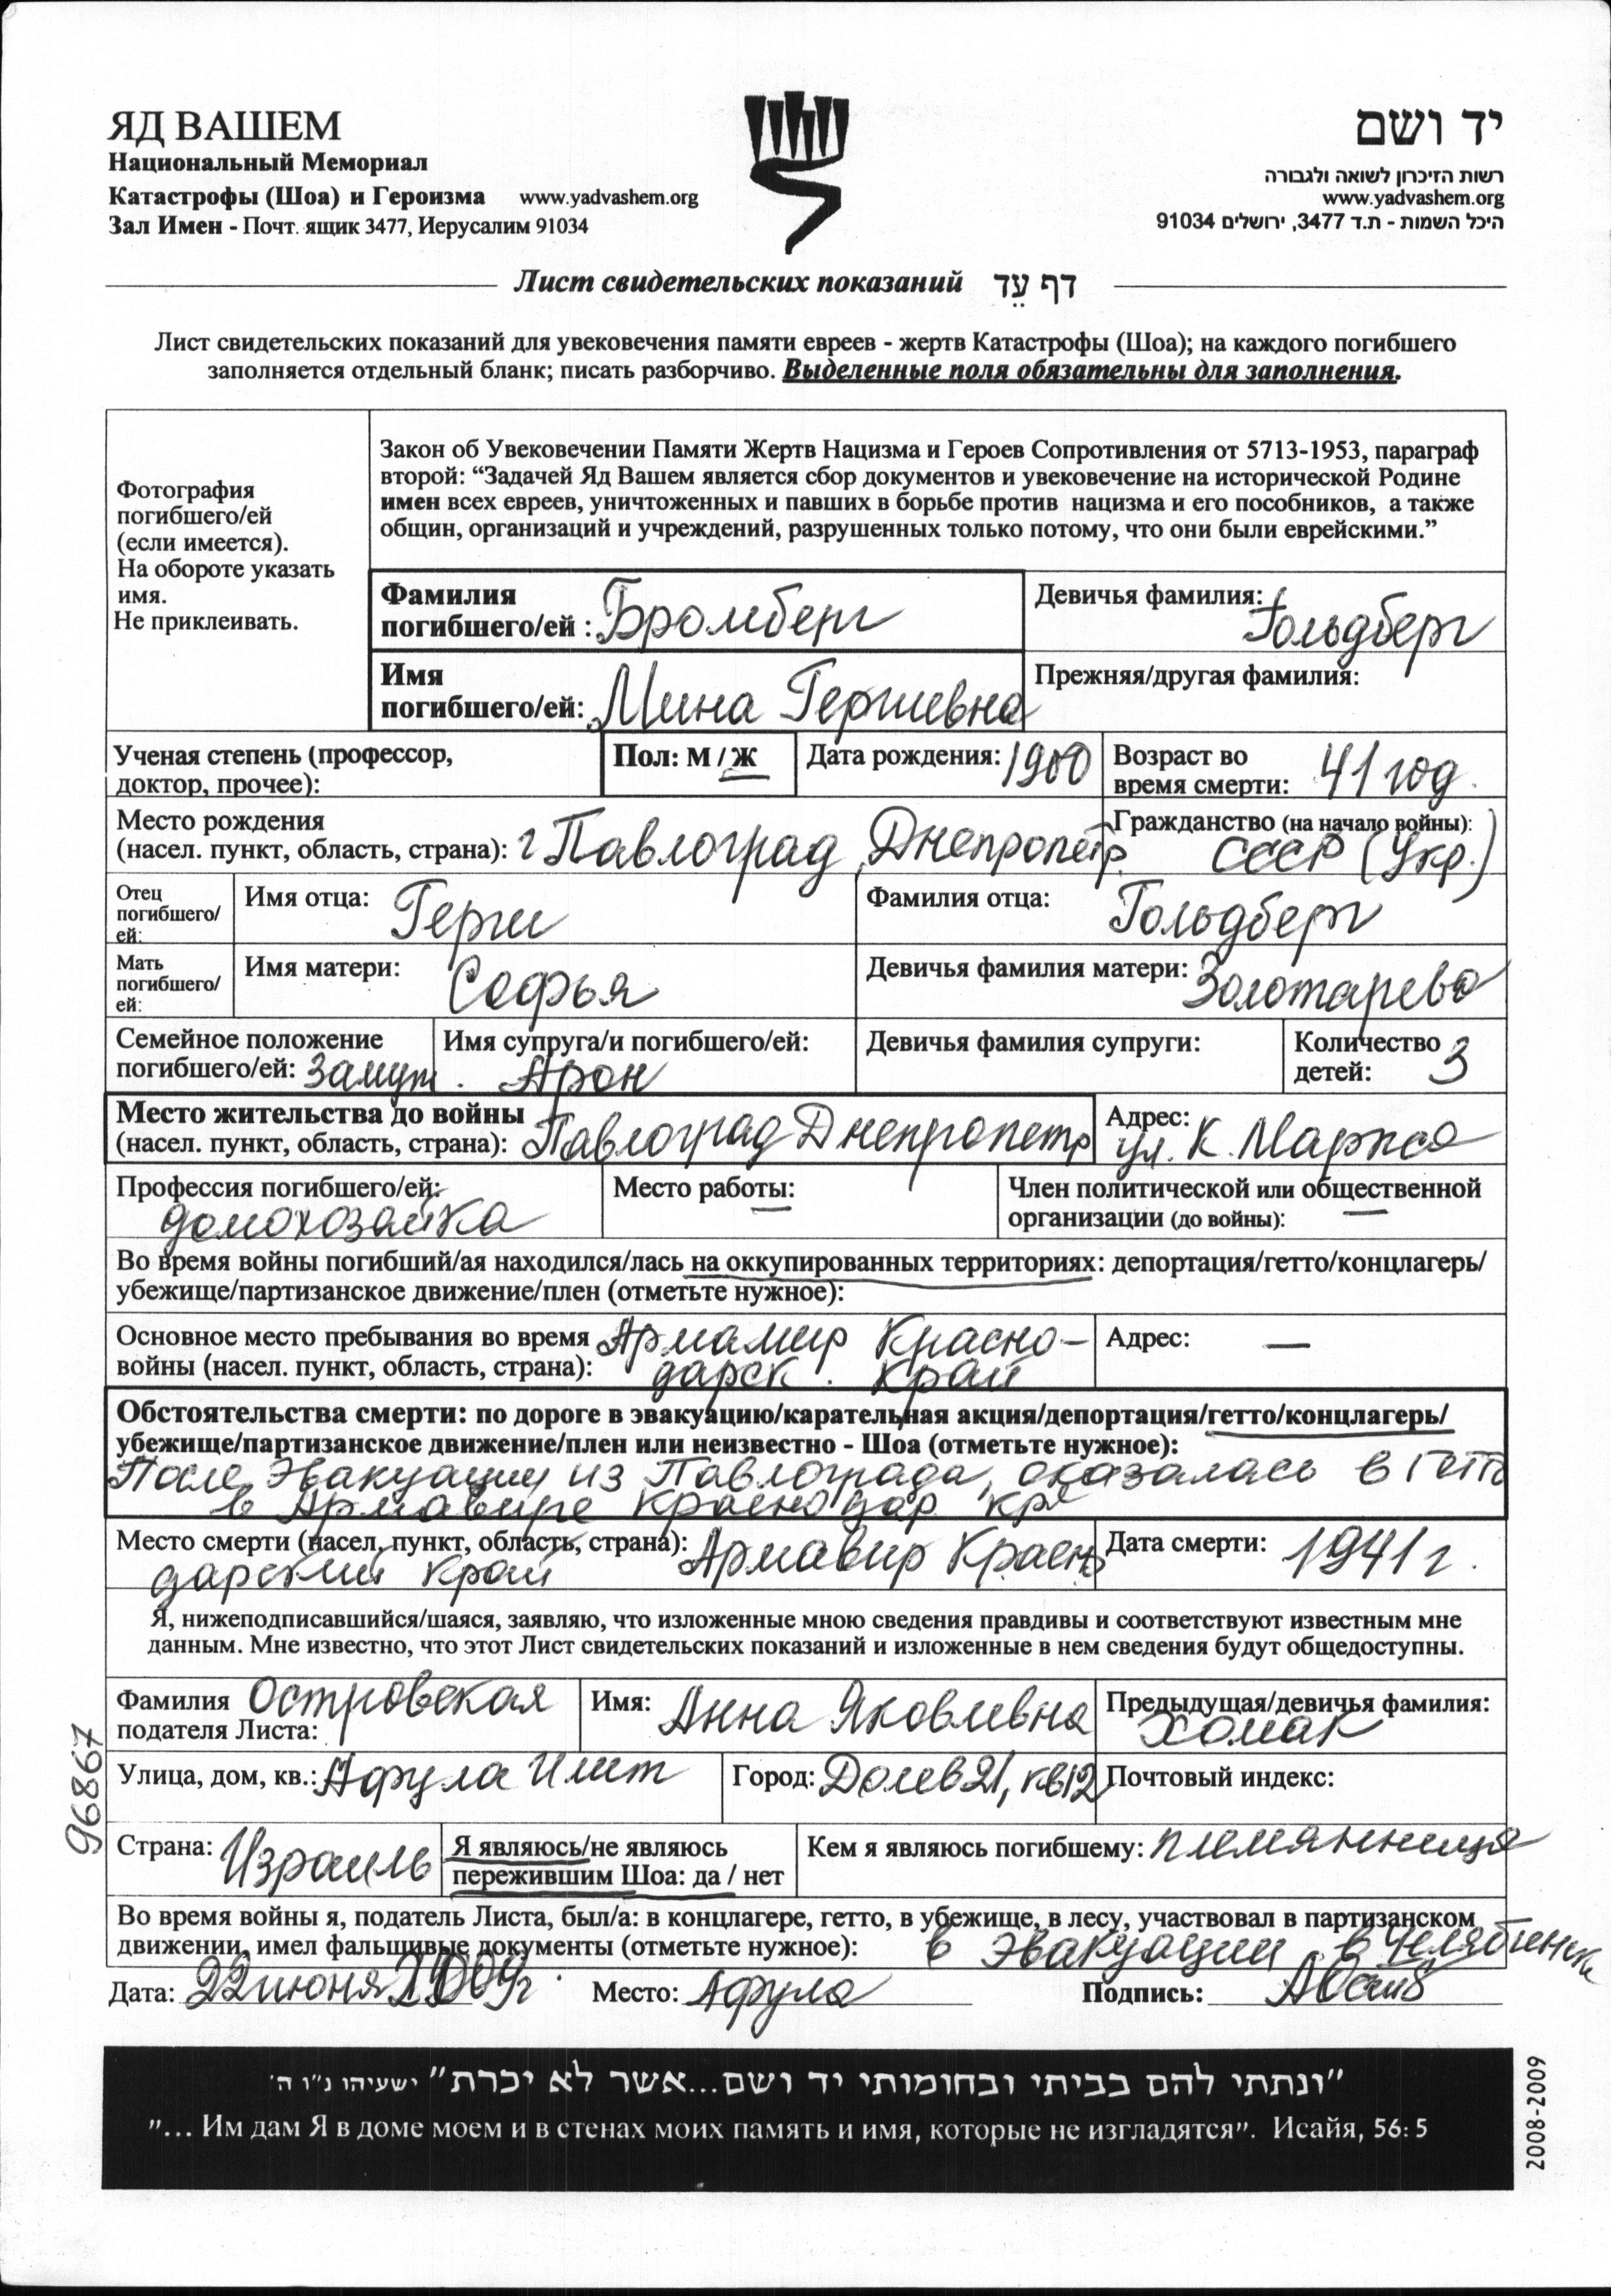 ЯД ВАШЕМ
יד ושם
Национальный Мемориал
Катастрофы (Шоа) и Героизма www.yadvashem.org
Зал Имен - Почт. ящик 3477, Иерусалим 91034
רשות הזיכרון לשואה ולגבורה
www.yadvashem.org
היכל השמות - ת.ד 3477, ירושלים 91034
Лист свидетельских показаний דף עֵד
Лист свидетельских показаний для увековечения памяти евреев - жертв Катастрофы (Шоа); на каждого погибшего
заполняется отдельный бланк; писать разборчиво. Выделенные поля обязательны для заполнения.
Фотография
погибшего/ей
(если имеется).
На обороте указать
имя.
Не приклеивать.
Закон об Увековечении Памяти Жертв Нацизма и Героев Сопротивления от 5713-1953, параграф
второй: “Задачей Яд Вашем является сбор документов и увековечение на исторической Родине
имен всех евреев, уничтоженных и павших в борьбе против нацизма и его пособников, а также
общин, организаций и учреждений, разрушенных только потому, что они были еврейскими.”
Фамилия
погибшего/ей : Бромберг
Девичья фамилия: Гольдберг
Имя
погибшего/ей: Мина Гершевна
Прежняя/другая фамилия:
Ученая степень (профессор,
доктор, прочее):
Пол: М / Ж
Дата рождения: 1900
Возраст во
время смерти: 41 год
Место рождения
(насел. пункт, область, страна): г Павлоград, Днепропетр.
Гражданство (на начало войны):
СССР (Укр.)
Отец
погибшего/
ей:
Имя отца: Герш
Фамилия отца: Гольдберг
Мать
погибшего/
ей:
Имя матери: Софья
Девичья фамилия матери: Золотарева
Семейное положение
погибшего/ей: Замуж.
Имя супруга/и погибшего/ей:
Арон
Девичья фамилия супруги:
Количество
детей: 3
Место жительства до войны
(насел. пункт, область, страна): Павлоград Днепропетр
Адрес:
ул. К. Маркса
Профессия погибшего/ей:
домохозайка
Место работы:
—
Член политической или общественной
организации (до войны): —
Во время войны погибший/ая находился/лась на оккупированных территориях: депортация/гетто/концлагерь/
убежище/партизанское движение/плен (отметьте нужное):
Основное место пребывания во время Армамир Красно-
войны (насел. пункт, область, страна): дарск. край
Адрес: —
Обстоятельства смерти: по дороге в эвакуацию/карательная акция/депортация/гетто/концлагерь/
убежище/партизанское движение/плен или неизвестно - Шоа (отметьте нужное):
После эвакуации из Павлограда, оказалась в гетто
в Армавире Краснодар кра
Место смерти (насел. пункт, область, страна): Армавир Красно
дарский край
Дата смерти: 1941 г.
Я, нижеподписавшийся/шаяся, заявляю, что изложенные мною сведения правдивы и соответствуют известным мне
данным. Мне известно, что этот Лист свидетельских показаний и изложенные в нем сведения будут общедоступны.
Фамилия Островская
подателя Листа:
Имя: Анна Яковлевна
Предыдущая/девичья фамилия:
Хомак
Улица, дом, кв.: Афула Илит
Город: Долев 21, кв 12
Почтовый индекс:
Страна: Израиль
Я являюсь/не являюсь
пережившим Шоа: да / нет
Кем я являюсь погибшему: племянница
Во время войны я, податель Листа, был/а: в концлагере, гетто, в убежище, в лесу, участвовал в партизанском
движении, имел фальшивые документы (отметьте нужное): в эвакуации в Челябинске
Дата: 22 июня 2009г.
Место: Афула
Подпись:
96867
"ונתתי להם בביתי ובחומותי יד ושם...אשר לא יכרת" ישעיהו נ"ו ה'
"... Им дам Я в доме моем и в стенах моих память и имя, которые не изгладятся". Исайя, 56: 5
2008-2009